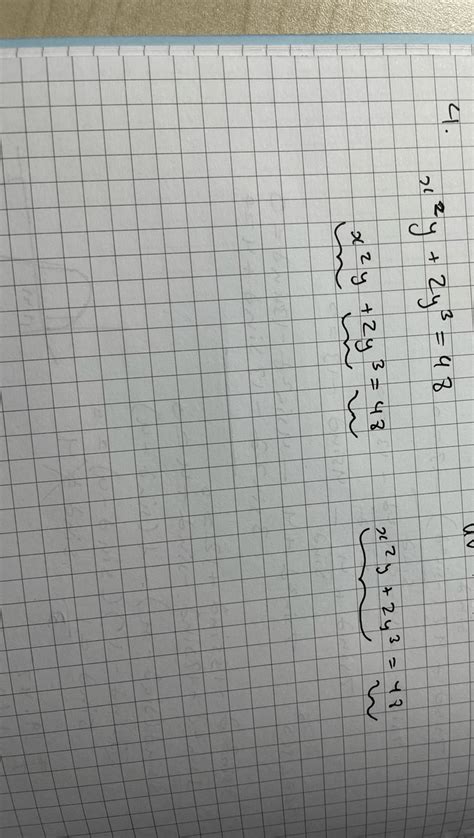 4.
x²y + 2y³ = 48
x²y + 2y³ = 48
x²y + 2y³ = 48